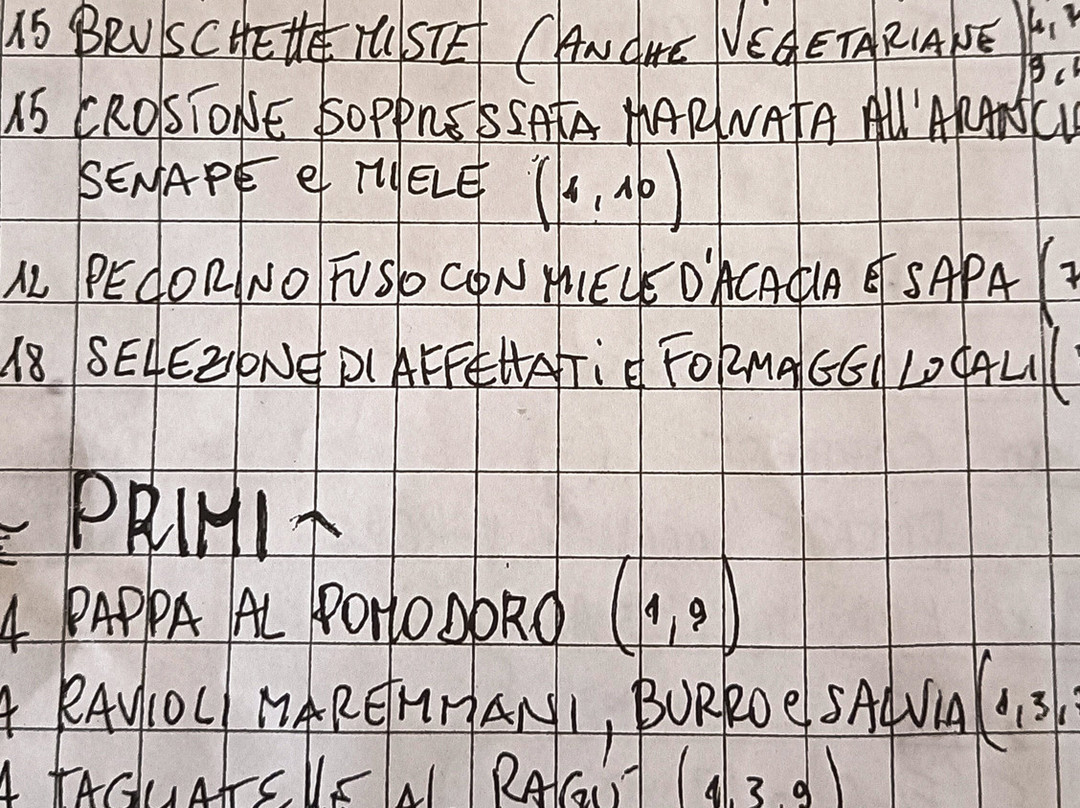 15 BRUSCHETTE MISTE (ANCHE VEGETARIANE)
15 CROSTONE SOPPRESSATA MARINATA All'ARANCIA
SENAPE e MIELE (1,10)
12 PECORINO FUSO CON MIELE D'ACACIA E SAPA (7
18 SELEZIONE DI AFFETTATI E FORMAGGI LOCALI (
~ PRIMI ~
4 PAPPA AL POMODORO (1,9)
4 RAVIOLI MAREMMANI, BURRO e SALVIA (1,3,
4 TAGLIATELLE AL RAGÙ (1,3,9)